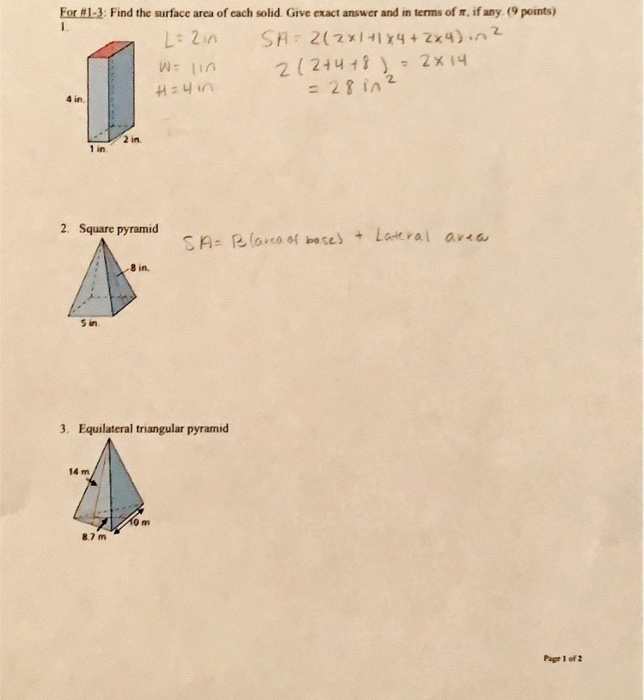 For #1-3: Find the surface area of each solid. Give exact answer and in terms of π, if any. (9 points)
1.
L = 2in SA = 2(2x1+1x4+2x4) in²
W = 1in 2(2+4+8) = 2x14
H = 4in = 28in²
4 in.
2 in.
1 in.
2. Square pyramid
SA = B(area of base) + Lateral area
8 in.
5 in.
3. Equilateral triangular pyramid
14 m
10 m
8.7 m
Page 1 of 2